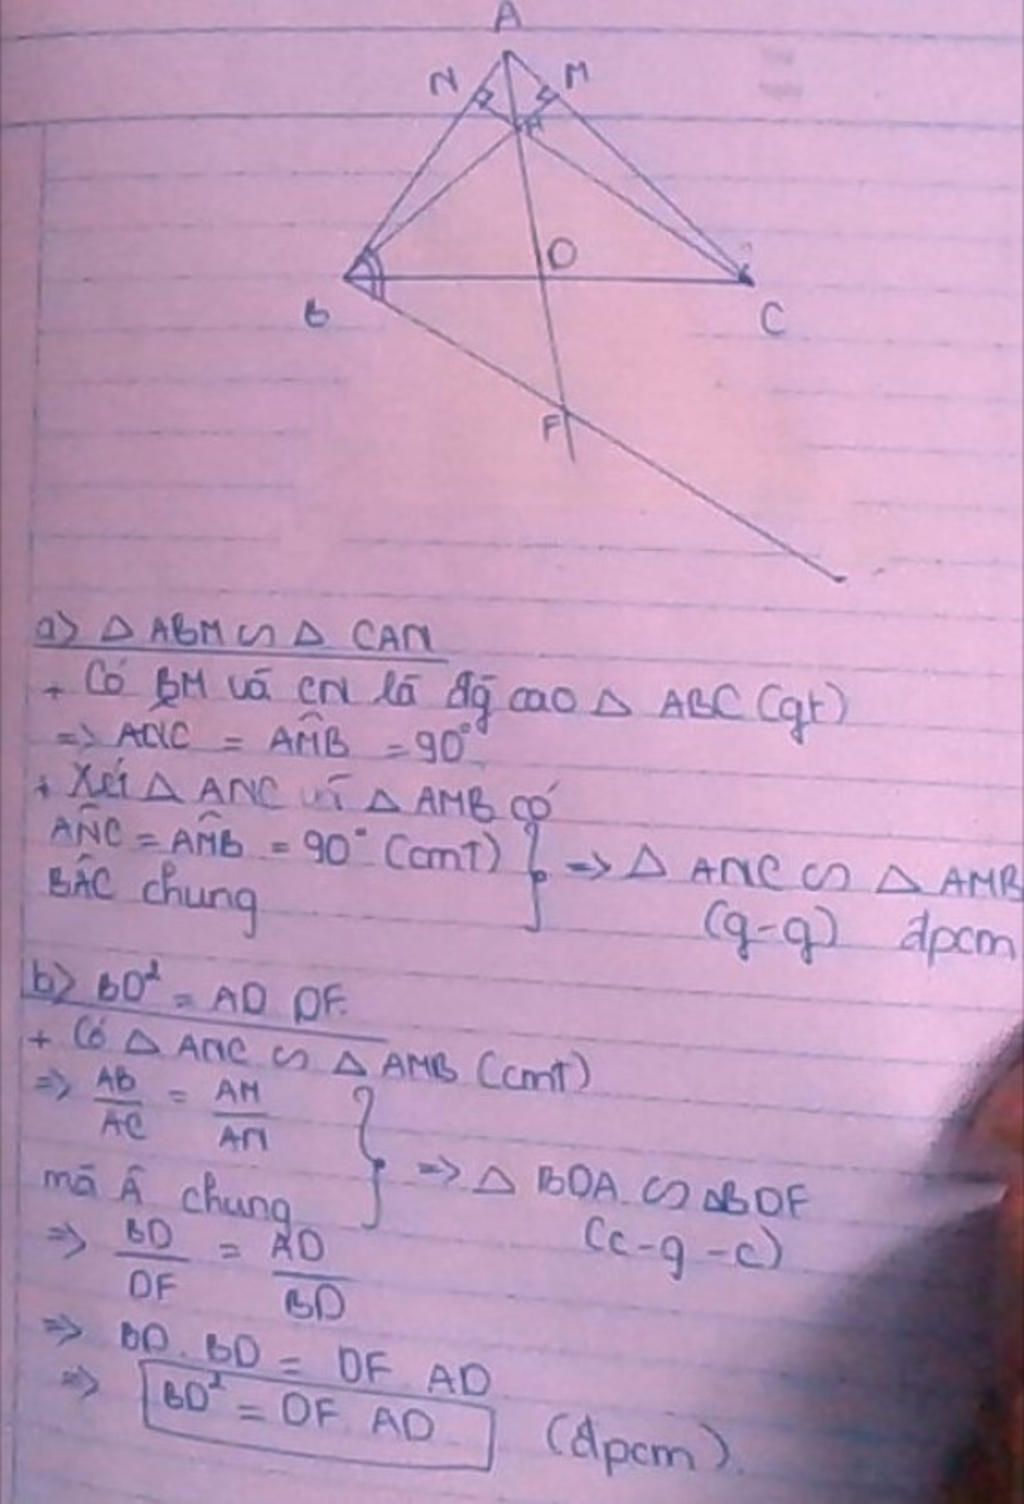 A
N
M
H
D
B
C
F
a) △ ABM ∽ △ CAN
+ Có BM và CN là đg̃ cao △ ABC (gt)
=> ANC = AM̂B = 90°
+ Xét △ ANC và △ AMB có
AN̂C = AM̂B = 90° (cmt) } => △ ANC ∽ △ AMB
BÂC chung
(g-g) đpcm
b) BD² = AD DF.
+ Có △ ANC ∽ △ AMB (cmt)
=> AB/AC = AM/AN
mà Â chung } => △ BDA ∽ △BDF
(c-g-c)
=> BD/DF = AD/BD
=> BD. BD = DF AD
=> BD² = DF AD (đpcm).